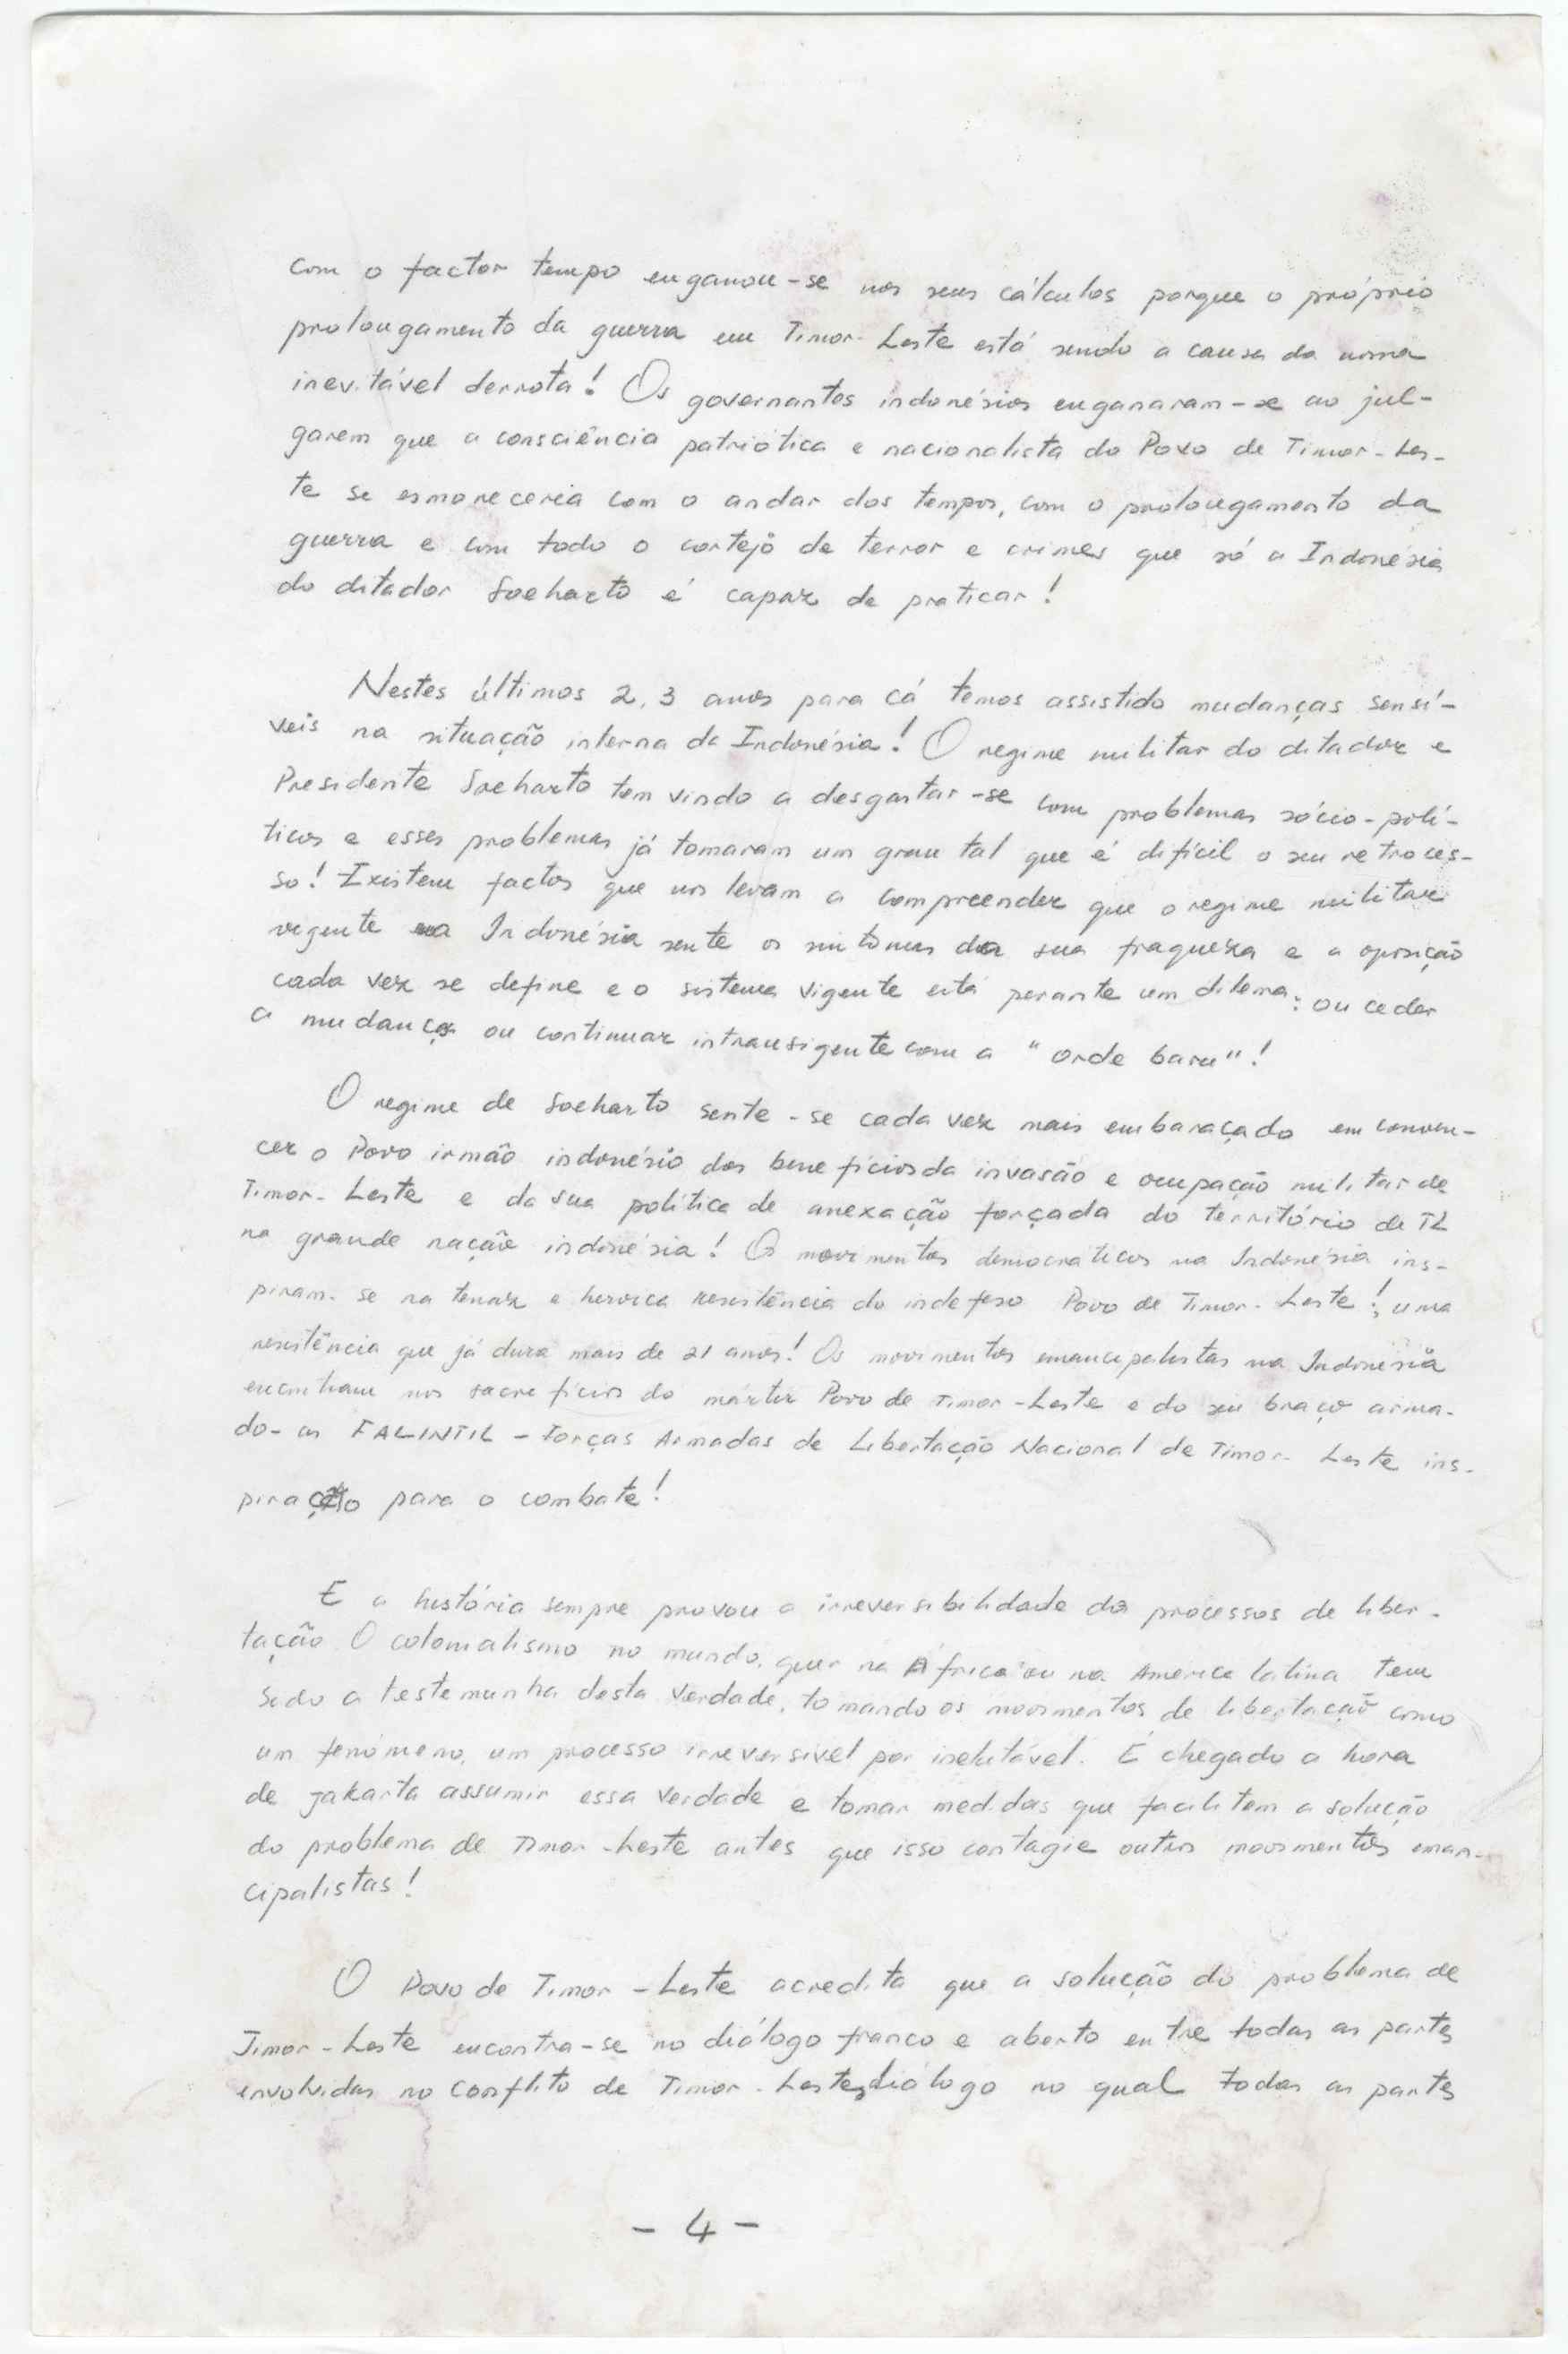 com o factor tempo enganou-se nos seus cálculos porque o próprio
prolongamento da guerra em Timor-Leste está sendo a causa da nossa
inevitável derrota! Os governantes indonésios enganaram-se ao jul-
garem que a consciência patriótica e nacionalista do Povo de Timor-Les-
te se esmoreceria com o andar dos tempos, com o prolongamento da
guerra e com todo o cortejo de terror e crimes que só a Indonésia
do ditador Soeharto é capaz de praticar!
Nestes últimos 2, 3 anos para cá temos assistido mudanças sensí-
veis na situação interna da Indonésia! O regime militar do ditador e
Presidente Soeharto tem vindo a desgastar-se com problemas sócio-polí-
ticos e esses problemas já tomaram um grau tal que é difícil o seu retroces-
so! Existem factos que nos levam a compreender que o regime militar
vigente na Indonésia sente os sintomas da sua fraqueza e a oposição
cada vez se define e o sistema vigente está perante um dilema: ou ceder
a mudança ou continuar intransigente com a "orde baru"!
O regime de Soeharto sente-se cada vez mais embaraçado em conven-
cer o Povo irmão indonésio dos benefícios da invasão e ocupação militar de
Timor-Leste e da sua política de anexação forçada do território de TL
na grande nação indonésia! Os movimentos democráticos na Indonésia ins-
piram-se na tenaz e heroica resistência do indefeso Povo de Timor-Leste!, uma
resistência que já dura mais de 21 anos! Os movimentos emancipalistas na Indonésia
encontram nos sacrefícios do mártir Povo de Timor-Leste e do seu braço arma-
do - as FALINTIL - Forças Armadas de Libertação Nacional de Timor-Leste ins-
piração para o combate!
E a história sempre provou a irreversibilidade dos processos de liber-
tação. O colonialismo no mundo, quer na África ou na America latina tem
sido a testemunha desta verdade, tomando os movimentos de libertação como
um fenómeno, um processo irreversível por inelutável. É chegado a hora
de Jakarta assumir essa verdade e tomar medidas que facilitem a solução
do problema de Timor-Leste antes que isso contagie outros movimentos eman-
cipalistas!
O Povo de Timor-Leste acredita que a solução do problema de
Timor-Leste encontra-se no diálogo franco e aberto entre todas as partes
envolvidas no conflito de Timor-Leste, diálogo no qual todas as partes
- 4 -